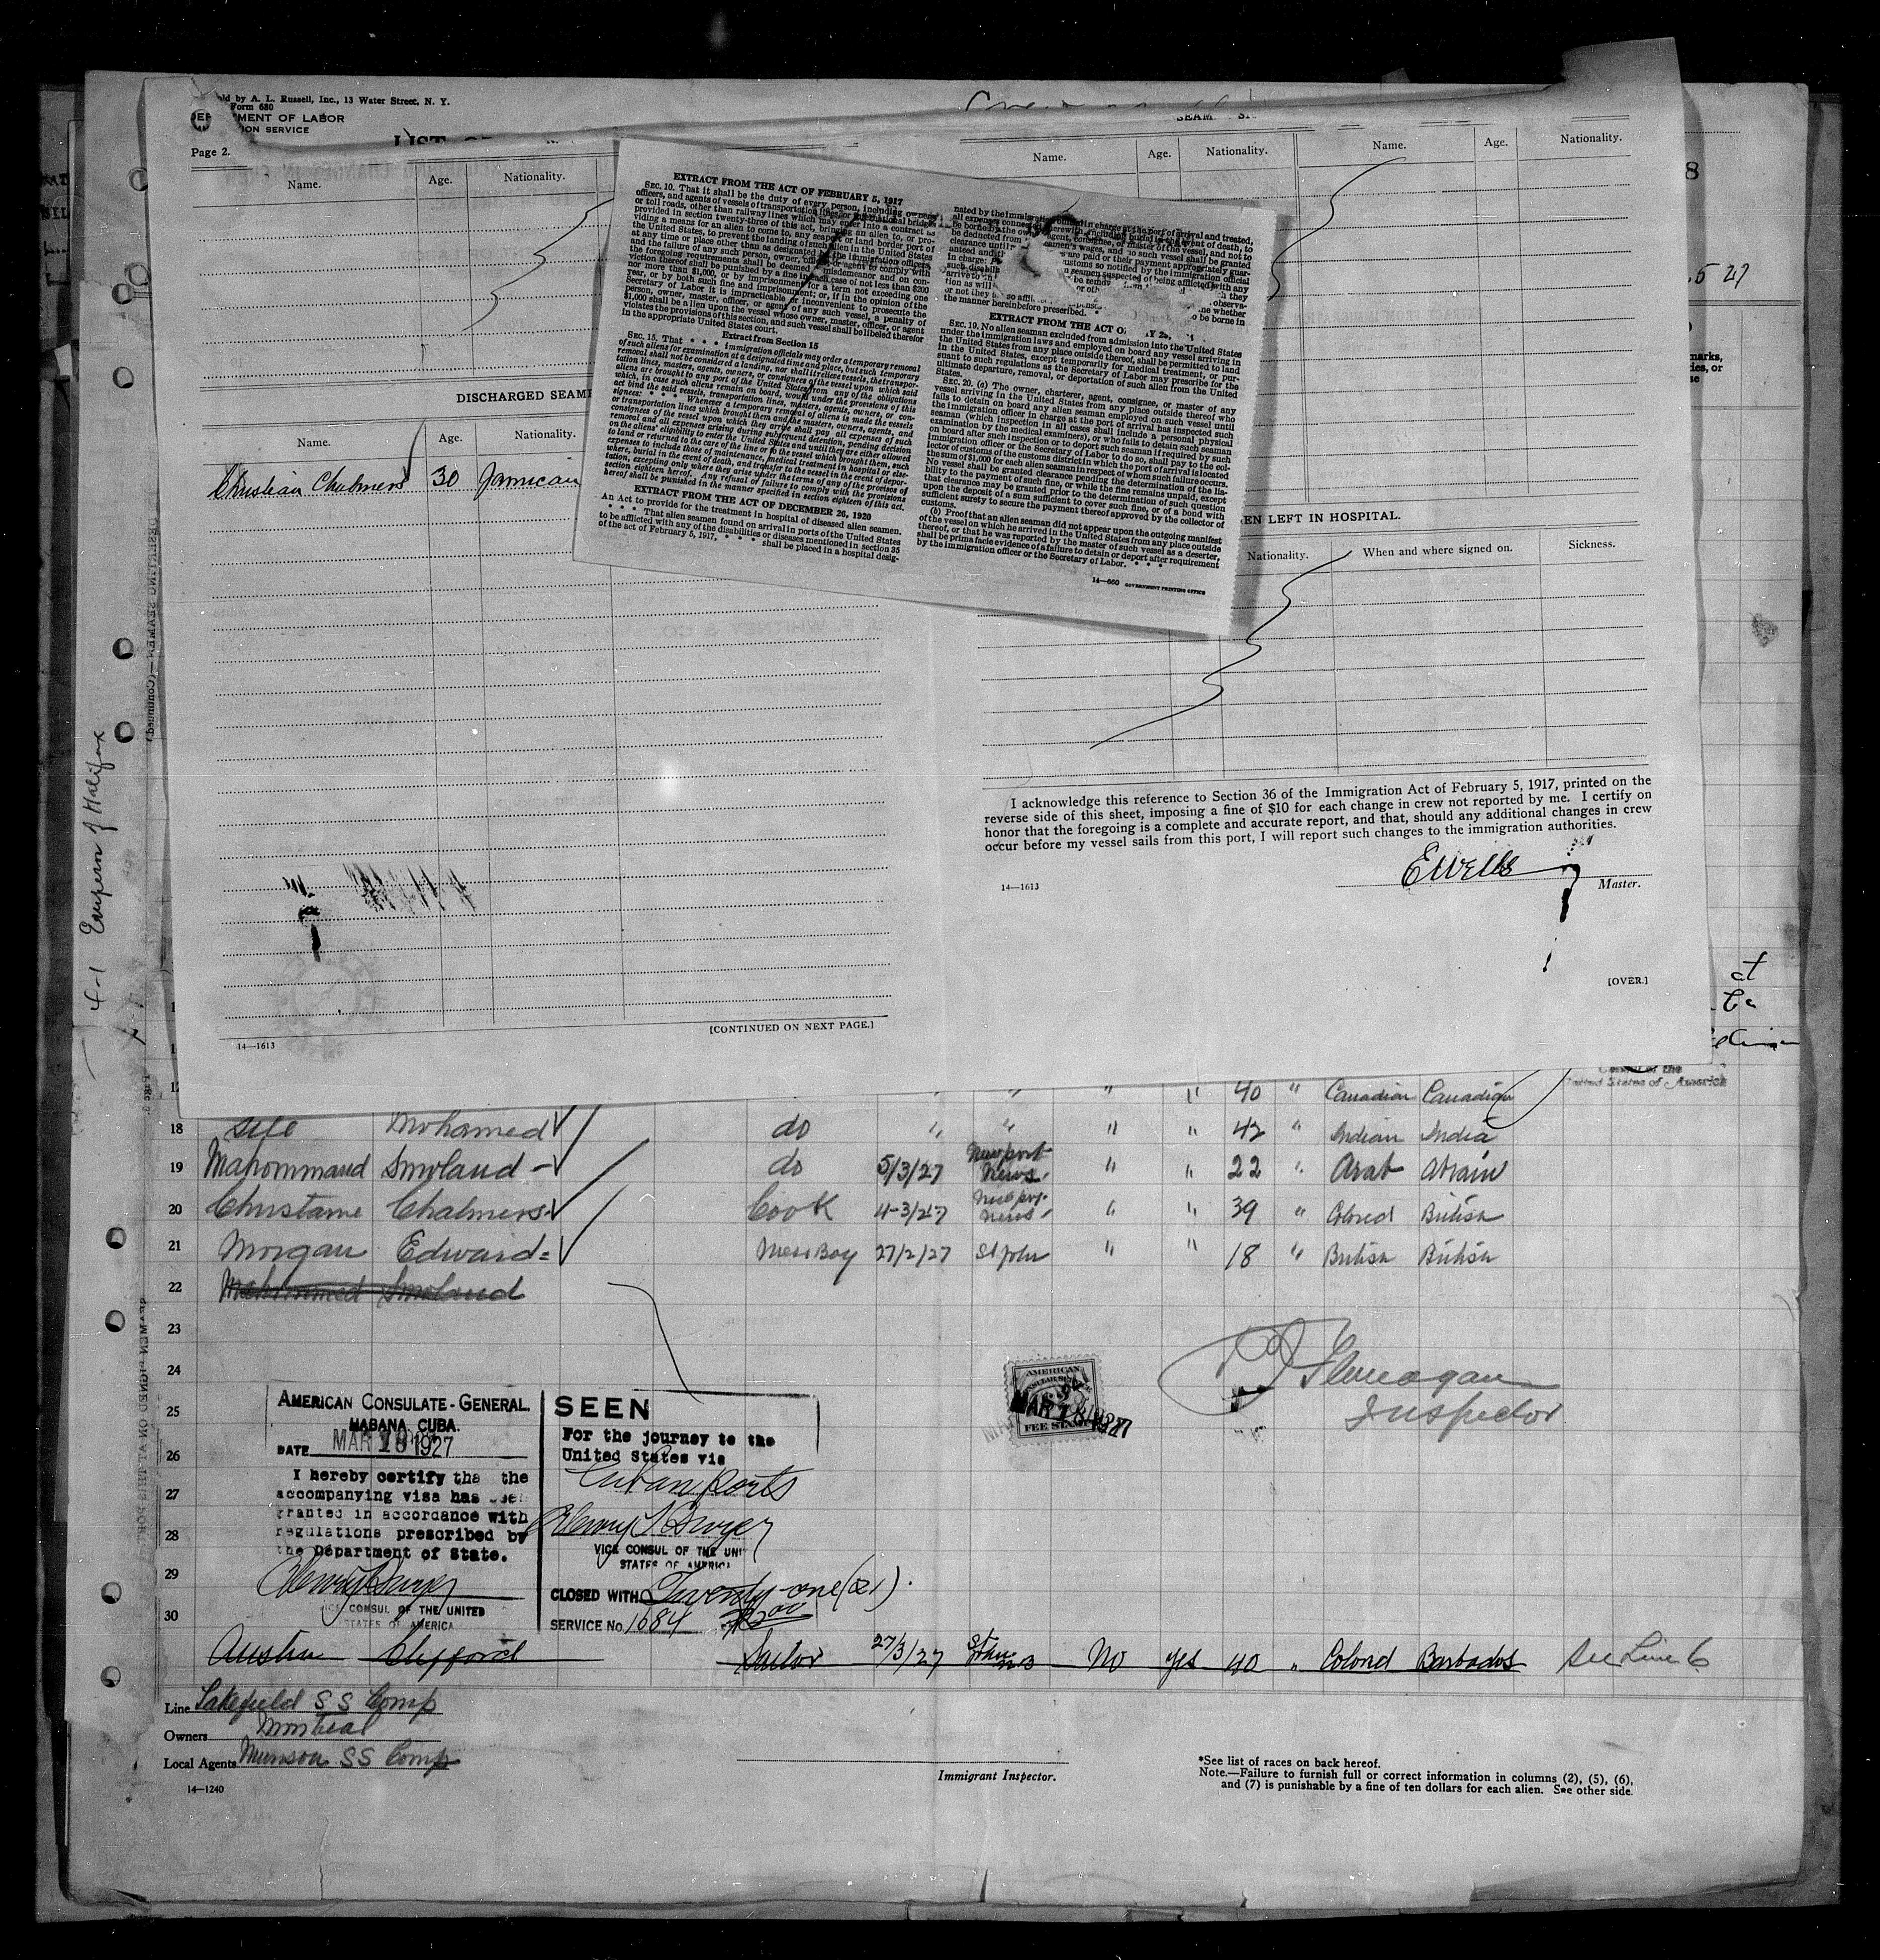 ld by A. L. Russell, Inc., 13 Water Street, N. Y.
Form 680
MENT OF LABOR
ION SERVICE
Page 2.
Name. Age. Nationality.
Name. Age. Nationality. Name. Age. Nationality.
8
5 27
EXTRACT FROM THE ACT OF FEBRUARY 5, 1917
SEC. 10. That it shall be the duty of every person, including owners,
officers, and agents of vessels of transportation lines, or international bridges
or toll roads, other than railway lines which may enter into a contract as
provided in section twenty-three of this act, bringing an alien to, or pro-
viding a means for an alien to come to, any seaport or land border port of
the United States, to prevent the landing of such alien in the United States
at any time or place other than as designated by the immigration officers,
and the failure of any such person, owner, officer, or agent to comply with
the foregoing requirements shall be deemed a misdemeanor and on con-
viction thereof shall be punished by a fine in each case of not less than $200
nor more than $1,000, or by imprisonment for a term not exceeding one
year, or by both such fine and imprisonment; or, if in the opinion of the
Secretary of Labor it is impracticable or inconvenient to prosecute the
person, owner, master, officer, or agent of any such vessel, a penalty of
$1,000 shall be a lien upon the vessel whose owner, master, officer, or agent
violates the provisions of this section, and such vessel shall be libeled therefor
in the appropriate United States court.
Extract from Section 15
SEC. 15. That * * * immigration officials may order a temporary removal
of such aliens for examination at a designated time and place, but such temporary
removal shall not be considered a landing, nor shall it relieve vessels, the transpor-
tation lines, masters, agents, owners, or consignees of the vessel upon which said
aliens are brought to any port of the United States from any of the obligations
which, in case such aliens remain on board, would under the provisions of this
act bind the said vessels, transportation lines, masters, agents, owners, or con-
signees: * * * Whenever a temporary removal of aliens is made the vessels
or transportation lines which brought them and the masters, owners, agents, and
consignees of the vessel upon which they arrive shall pay all expenses of such
removal and all expenses arising during subsequent detention, pending decision
on the aliens' eligibility to enter the United States and until they are either allowed
to land or returned to the care of the line or to the vessel which brought them, such
expenses to include those of maintenance, medical treatment in hospital or else-
where, burial in the event of death, and transfer to the vessel in the event of depor-
tation, excepting only where they arise under the terms of any of the provisos of
section eighteen hereof. Any refusal or failure to comply with the provisions
hereof shall be punished in the manner specified in section eighteen of this act.
EXTRACT FROM THE ACT OF DECEMBER 26, 1920
An Act to provide for the treatment in hospital of diseased alien seamen.
* * * That alien seamen found on arrival in ports of the United States
to be afflicted with any of the disabilities or diseases mentioned in section 35
of the act of February 5, 1917, * * * shall be placed in a hospital desig-
nated by the immigration official in charge at the port of arrival and treated,
all expenses connected therewith, including burial in the event of death, to
be borne by the owner, agent, consignee, or master of the vessel, and not to
be deducted from seamen's wages, and no such vessel shall be granted
clearance until are paid or their payment appropriately guar-
anteed and customs so notified by the immigration official
in charge: seamen suspected of being afflicted with any
the manner hereinbefore prescribed.
EXTRACT FROM THE ACT O
SEC. 19. No alien seaman excluded from admission into the United States
under the immigration laws and employed on board any vessel arriving in
the United States from any place outside thereof, shall be permitted to land
in the United States, except temporarily for medical treatment, or pur-
suant to such regulations as the Secretary of Labor may prescribe for the
ultimate departure, removal, or deportation of such alien from the United
States.
SEC. 20. (a) The owner, charterer, agent, consignee, or master of any
vessel arriving in the United States from any place outside thereof who
fails to detain on board any alien seaman employed on such vessel until
the immigration officer in charge at the port of arrival has inspected such
seaman (which inspection in all cases shall include a personal physical
examination by the medical examiners), or who fails to detain such seaman
on board after such inspection or to deport such seaman if required by such
immigration officer or the Secretary of Labor to do so, shall pay to the col-
lector of customs of the customs district in which the port of arrival is located
the sum of $1,000 for each alien seaman in respect of whom such failure occurs.
No vessel shall be granted clearance pending the determination of the lia-
bility to the payment of such fine, or while the fine remains unpaid, except
that clearance may be granted prior to the determination of such question
upon the deposit of a sum sufficient to cover such fine, or of a bond with
sufficient surety to secure the payment thereof approved by the collector of
customs.
(b) Proof that an alien seaman did not appear upon the outgoing manifest
of the vessel on which he arrived in the United States from any place outside
thereof, or that he was reported by the master of such vessel as a deserter,
shall be prima facie evidence of a failure to detain or deport after requirement
by the immigration officer or the Secretary of Labor. * * *
14—660 GOVERNMENT PRINTING OFFICE
DISCHARGED SEAM
Name. Age. Nationality.
Christian Chalmers 30 Jamican
EN LEFT IN HOSPITAL.
Nationality. When and where signed on. Sickness.
I acknowledge this reference to Section 36 of the Immigration Act of February 5, 1917, printed on the
reverse side of this sheet, imposing a fine of $10 for each change in crew not reported by me. I certify on
honor that the foregoing is a complete and accurate report, and that, should any additional changes in crew
occur before my vessel sails from this port, I will report such changes to the immigration authorities.
EWells
14—1613 Master.
[OVER.]
[CONTINUED ON NEXT PAGE.]
14—1613
4-1 Emperor of Halifax
United States of America
" " " 40 " Canadian Canadian
18 Mohamed do " " " " 42 " Indian India
19 Mahommand Smoland do 5/3/27 Newport News " " 22 " Arab
20 Christame Chalmers Cook 4-3/27 Newport News " " 39 " Colored British
21 Morgan Edward Mess Boy 27/2/27 St John " " 18 " British British
22 Mahommed Smoland
23
24
25
26
27
28
29
30
Flanagan
Inspector
AMERICAN CONSULATE-GENERAL.
HABANA, CUBA.
DATE MAR 18 1927
I hereby certify tha the
accompanying visa has
granted in accordance with
regulations prescribed by
the Department of State.
CONSUL OF THE UNITED
STATES OF AMERICA
SEEN
For the journey to the
United States via
Cuban Ports
VICE CONSUL OF THE UNI
STATES OF AMERICA
CLOSED WITH Twenty-one (21).
SERVICE No. 1684
AMERICAN
FEE STAMP
MAR 18 1927
Austin Clifford Sailor 27/3/27 St John NB No yes 40 " Colored Barbados See Line 6
Line Lakefield S S Comp
Owners Montreal
Local Agents Munson SS Comp
14—1240
Immigrant Inspector.
*See list of races on back hereof.
Note.—Failure to furnish full or correct information in columns (2), (5), (6),
and (7) is punishable by a fine of ten dollars for each alien. See other side.